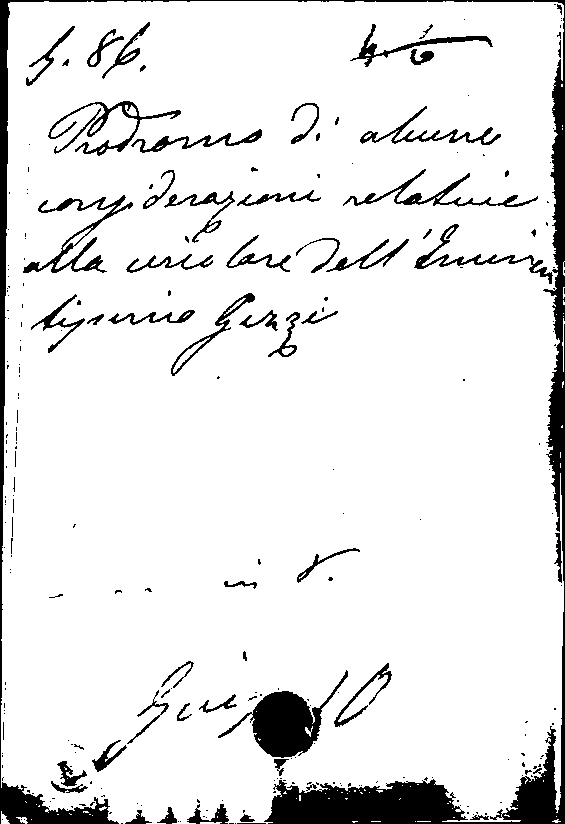 h. 86. 4. 6
Prodromo di alcune
considerazioni relative
alla circolare dell'Eminen
tissimo Gizzi
in 8.